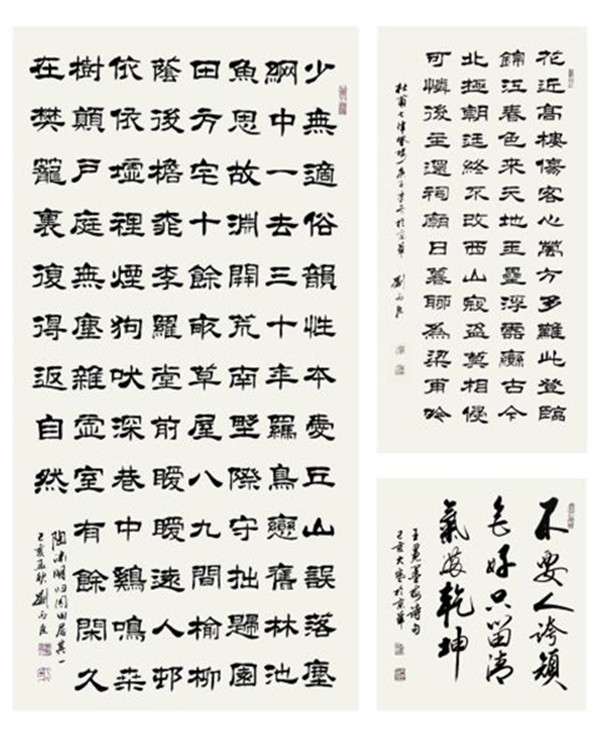 少無適俗韻性本愛丘山誤落塵
網中一去三十年羈鳥戀舊林池
魚思故淵開荒南野際守拙歸園
田方宅十餘畝草屋八九間榆柳
蔭後檐桃李羅堂前曖曖遠人邨
依依墟裡煙狗吠深巷中鷄鳴桑
樹顛戶庭無塵雜虛室有餘閑久
在樊籠裏復得返自然
陶淵明归园田居其一
己亥孟秋劉丙良
花近高樓傷客心萬方多難此登臨
錦江春色來天地玉壘浮雲變古今
北極朝廷終不改西山寇盜莫相侵
可憐後主還祠廟日暮聊為梁甫吟
杜甫七律登楼一首於京華 劉丙良
不要人誇顏
色好只留清
氣滿乾坤
王冕墨梅詩句
己亥大寒於京華